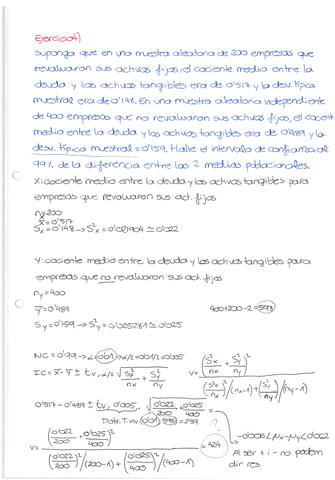 Ejercicio 4)
Suponga que en una muestra aleatoria de 200 empresas que
revaluaron sus activos fijos, el cociente medio entre la
deuda y los activos tangibles era de 0'517 y la desv. típica
muestral era de 0'148. En una muestra aleatoria independiente
de 400 empresas que no revaluaron sus activos fijos, el cocient
medio entre la deuda y los activos tangibles era de 0'489 y la
desv. típica muestral = 0'159. Halle el intervalo de confianza al
99% de la diferencia entre las 2 medias poblacionales.
X: cociente medio entre la deuda y los activos tangibles para
empresas que revaluaron sus act. fijos
nx=200
x̄=0'517
Sx=0'148 → S²x=0'021904 ≅ 0'022
Y: cociente medio entre la deuda y los activos tangibles para
empresas que no revaluaron sus act. fijos
ny=400
ȳ=0'489 400+200-2=598
Sy=0'159 → S²y=0'025281 ≅ 0'025
NC=0'99 → α=0'01 → α/2=0'01/2=0'005
IC = x̄-ȳ ± tv,α/2 √(S²x/nx + S²y/ny) v= (S²x/nx + S²y/ny)² / ((S²x/nx)²/(nx-1) + (S²y/ny)²/(ny-1))
0'517-0'489 ± tv,0'005 · √(0'022/200 + 0'025/400)
v= (0'022/200 + 0'025/400)² / ((0'022/200)²/(200-1) + (0'025/400)²/(400-1)) = 424
Al ser + i - no podem
dir res.